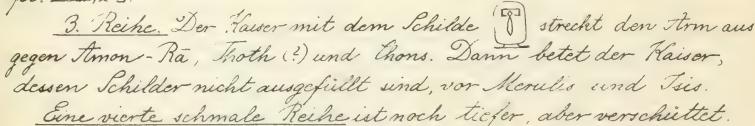 3. Reihe. Der Kaiser mit dem Schilde streckt den Arm aus
gegen Amon-Rā, Thoth (?) und Chons. Dann betet der Kaiser,
dessen Schilder nicht ausgefüllt sind, vor Merulis und Isis.
Eine vierte schmale Reihe ist noch tiefer, aber verschüttet.